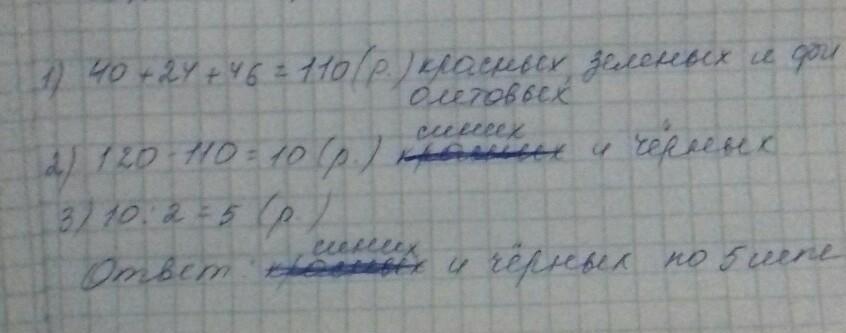 1) 40 + 24 + 46 = 110 (р.) красных, зеленых и фи
олетовых
синих
2) 120 - 110 = 10 (р.) красных и чёрных
3) 10 : 2 = 5 (р.)
синих
Ответ: красных и чёрных по 5